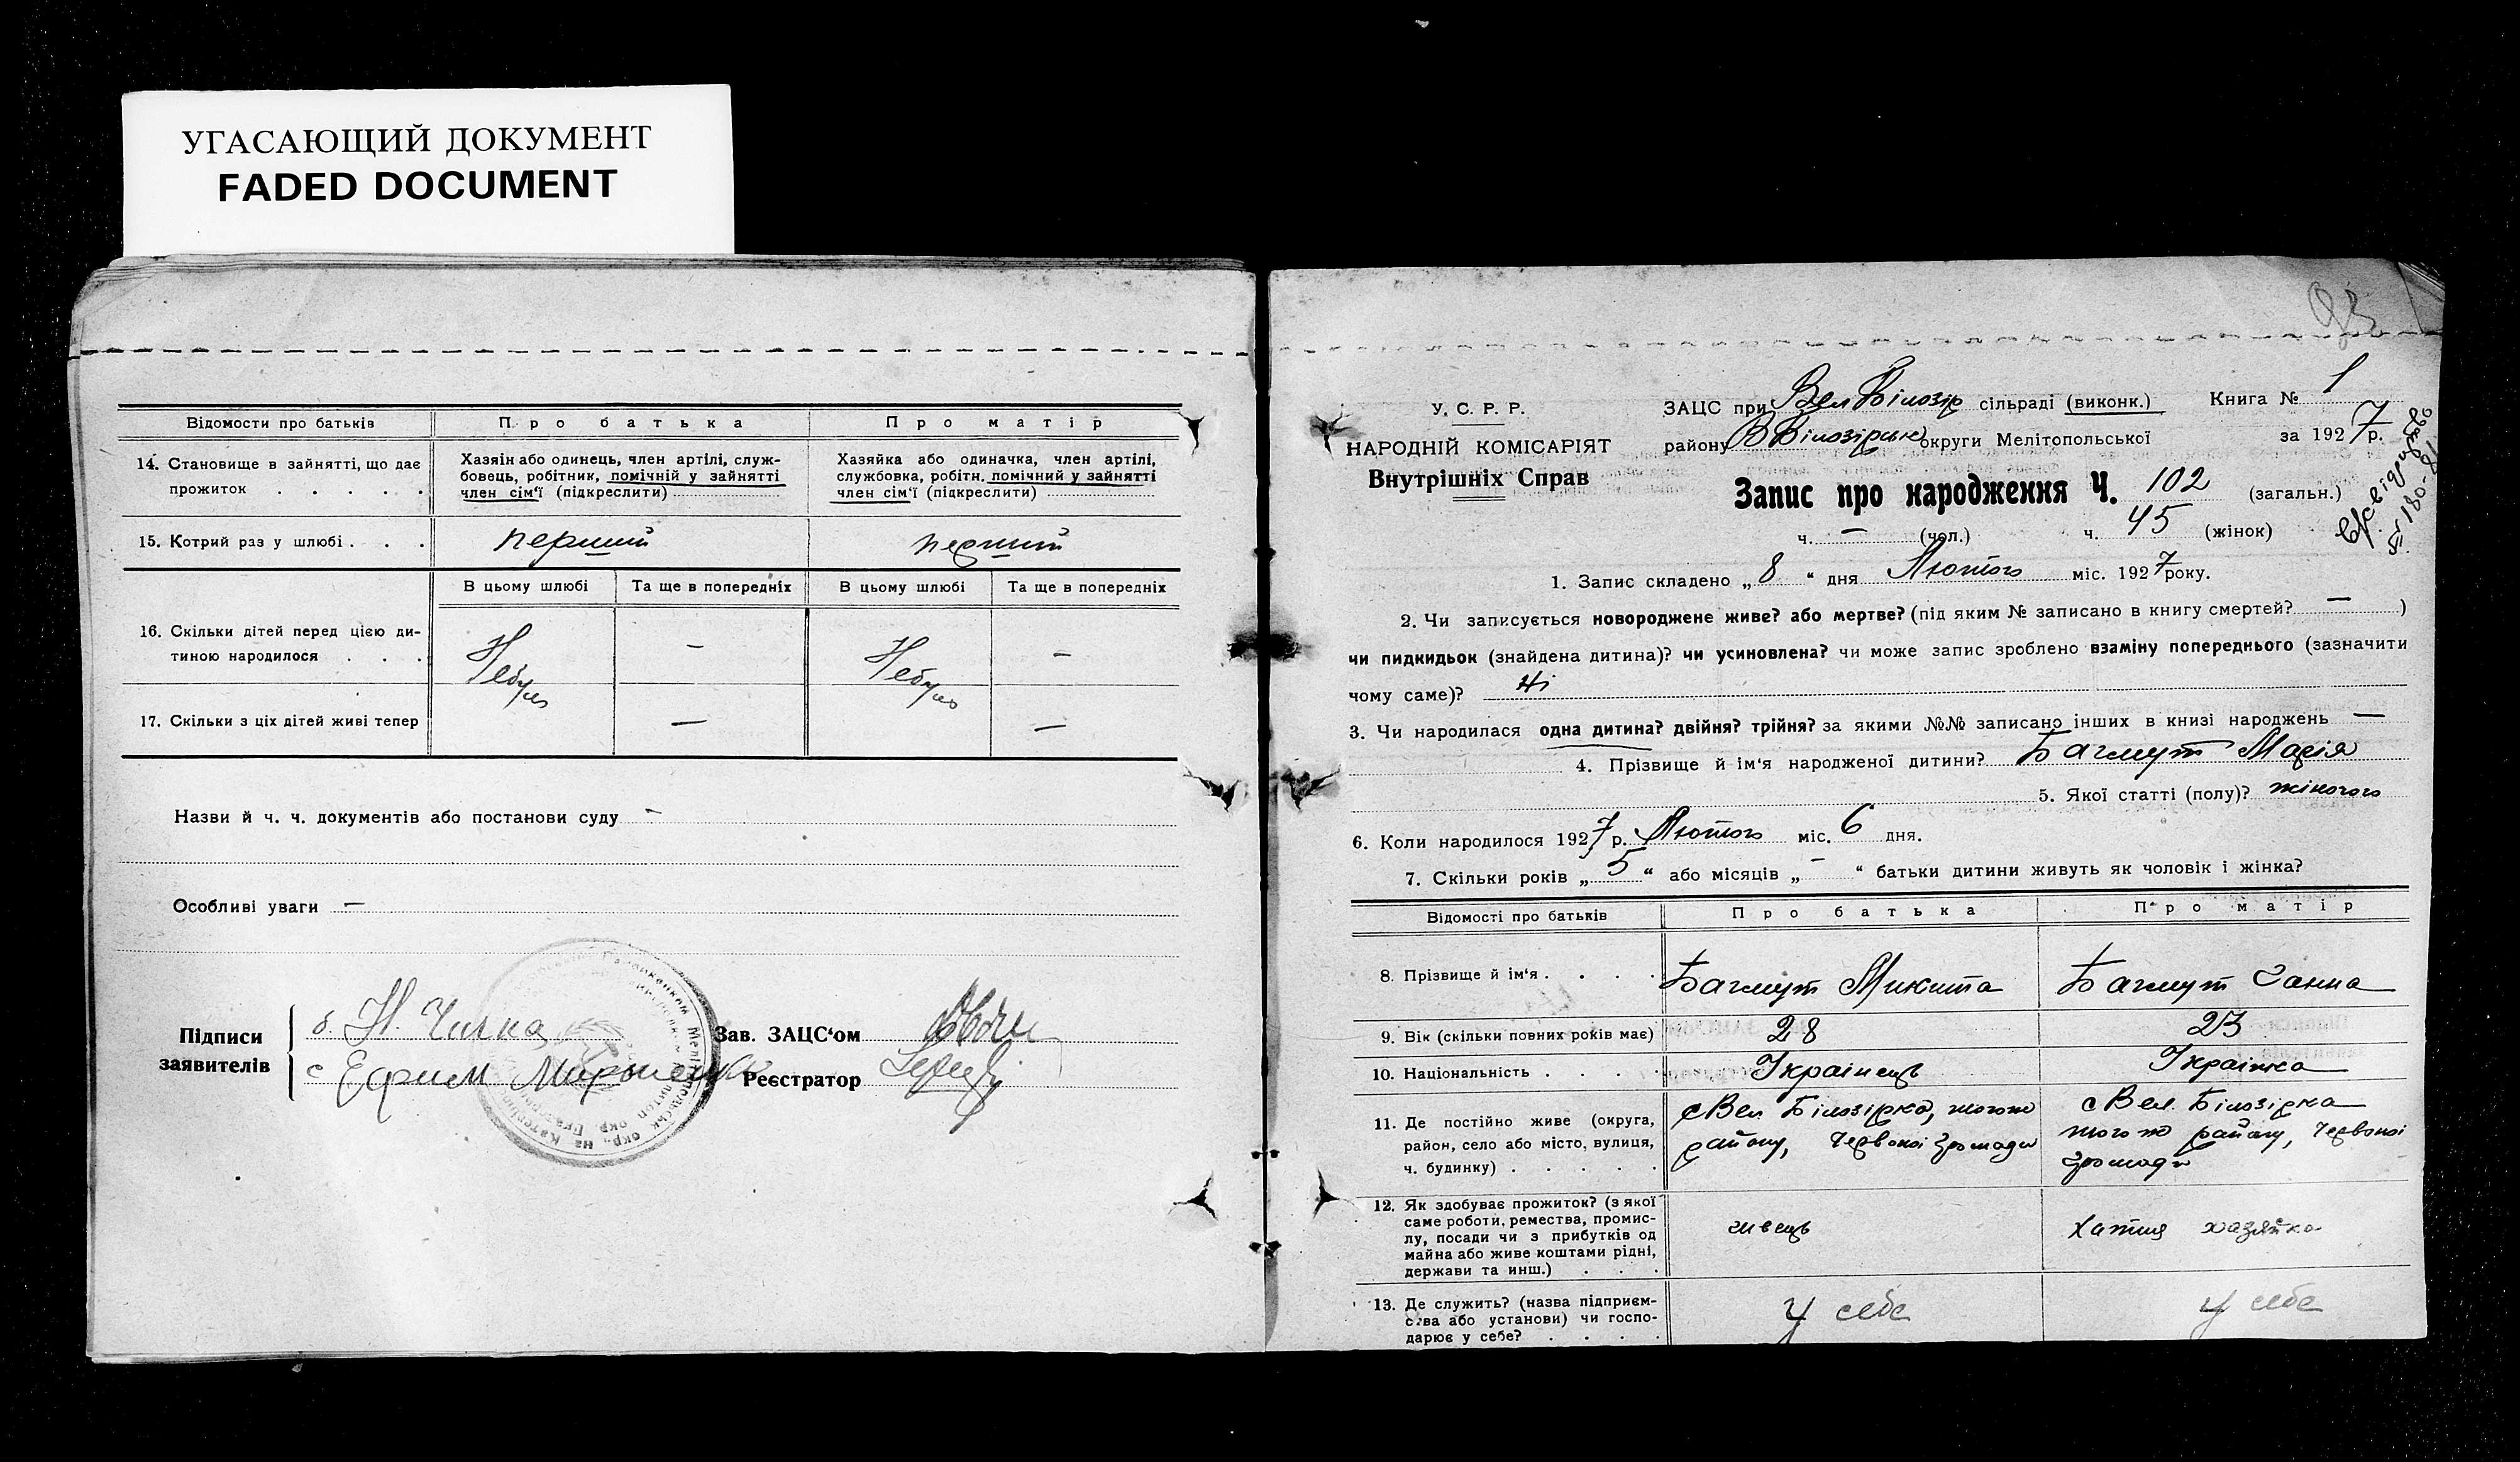 УГАСАЮЩИЙ ДОКУМЕНТ
FADED DOCUMENT
Відомости про батьків
Про батька
Про матір
14. Становище в зайнятті, що дає прожиток . . . . .
Хазяін або одинець, член артілі, служ-
бовець, робітник, помічній у зайнятті
член сім'ї (підкреслити)
Хазяйка або одиначка, член артілі,
службовка, робітн. помічний у зайнятті
член сім'ї (підкреслити)
15. Котрий раз у шлюбі . . .
перший
перший
В цьому шлюбі
Та ще в попередніх
В цьому шлюбі
Та ще в попередніх
16. Скільки дітей перед цією ди-
тиною народилося . . .
Небуло
—
Небуло
—
17. Скільки з ціх дітей живі тепер
—
—
Назви й ч. ч. документів або постанови суду —
Особливі уваги —
Підписи
заявителів
Зав. ЗАЦС'ом
Ефим
Реєстратор
У. С. Р. Р.
НАРОДНІЙ КОМІСАРІЯТ
Внутрішніх Справ
ЗАЦС при Вел Білозір сільраді (виконк.)
Книга № 1
району В Білозірськ округи Мелітопольської
за 1927 р.
Запис про народження Ч. 102 (загальн.)
ч. — (чол.) ч. 45 (жінок)
1. Запис складено „8“ дня Лютого міс. 1927 року.
2. Чи записується новороджене живе? або мертве? (під яким № записано в книгу смертей? — )
чи пидкидьок (знайдена дитина)? чи усиновлена? чи може запис зроблено взаміну попереднього (зазначити
чому саме)? Ні
3. Чи народилася одна дитина? двійня? трійня? за якими №№ записано інших в книзі народжень —
4. Прізвище й ім'я народженої дитини? Багмут Марія
5. Якої статті (полу)? жіночого
6. Коли народилося 1927 р. Лютого міс. 6 дня.
7. Скільки років „5“ або місяців „—“ батьки дитини живуть як чоловік і жінка?
Відомості про батьків
Про батька
Про матір
8. Прізвище й ім'я . . . .
Багмут Микита
Багмут Ганна
9. Вік (скільки повних років має)
28
23
10. Національність . . . . .
Українець
Українка
11. Де постійно живе (округа,
район, село або місто, вулиця,
ч. будинку) . . . . .
с Вел Білозірка, того ж
району, Червоної громади
с Вел. Білозірка
того ж району, Червоної
громади
12. Як здобуває прожиток? (з якої
саме роботи, ремества, промис-
лу, посади чи з прибутків од
майна або живе коштами рідні,
держави та инш.) . . .
швець
Хатня хазяйка
13. Де служить? (назва підприєм-
ства або установи) чи госпо-
дарює у себе? . . . .
У себе
У себе